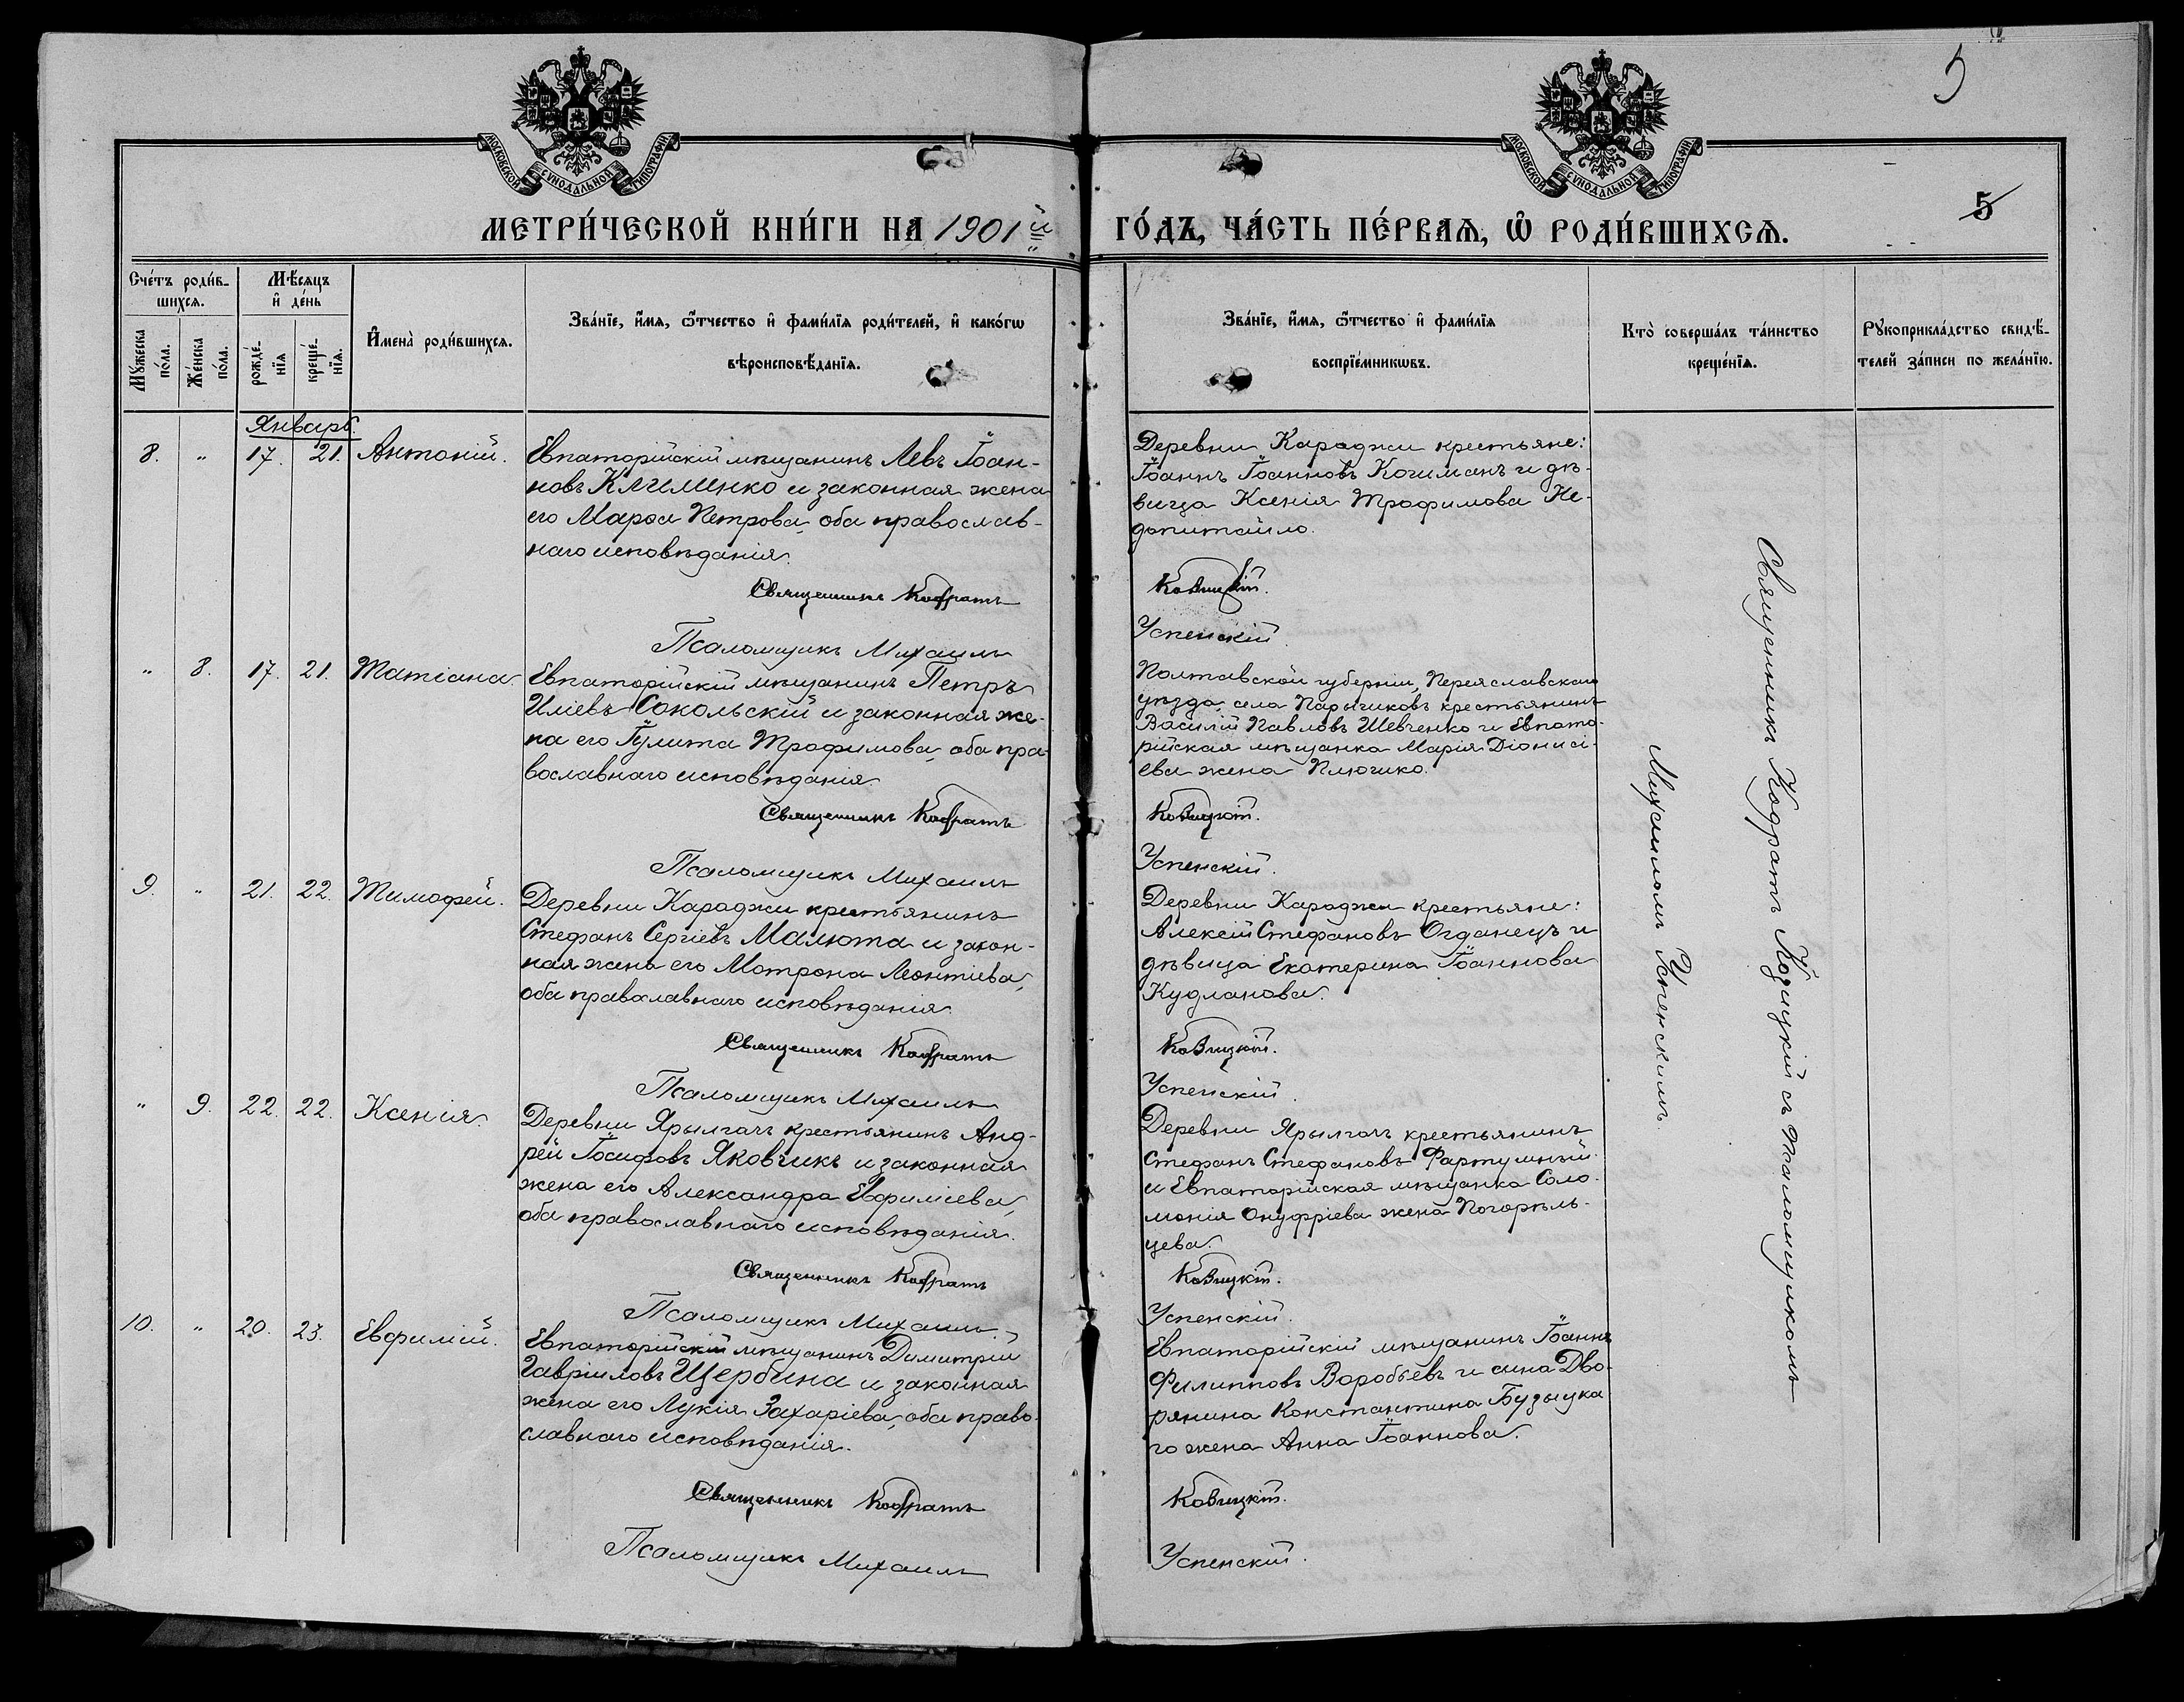 5
МОСКОВСКОЙ СѴНОДАЛЬНОЙ ТИПОГРАФІИ
МОСКОВСКОЙ СѴНОДАЛЬНОЙ ТИПОГРАФІИ
5
МЕТРИ́ЧЕСКОЙ КНИ́ГИ НА 1901й ГО́ДЪ, ЧА́СТЬ ПЕ́РВАѦ, Ѽ РОДИ́ВШИХСѦ.
Сче́тъ роди́в-
шихсѧ.
Мѣ́сѧцъ
и҆ де́нь
Мꙋ́жеска
по́ла.
Же́нска
по́ла.
рожде́-
нїѧ
креще́-
нїѧ.
И҆мена̀ роди́вшихсѧ.
Зва́нїе, и҆́мѧ, ѻ҆́тчество и҆ фами́лїѧ роди́телей, и҆ како́гѡ
вѣроисповѣ́данїѧ.
Зва́нїе, и҆́мѧ, ѻ҆́тчество и҆ фами́лїѧ
воспрїе́мникѡвъ.
Кто̀ соверша́лъ та́инство
креще́нїѧ.
Рꙋкоприкла́дство свидѣ́-
телей за́писи по жела́нїю.
Январь.
8. " 17. 21. Антоній.
Евпаторійскій мѣщанинъ Левъ Іоан-
новъ Клименко и законная жена
его Марѳа Петрова, оба православ-
наго исповѣданія.
Священникъ Кодратъ
Псаломщикъ Михаилъ
Деревни Караджи крестьяне:
Іоаннъ Іоанновъ Кочиманъ и дѣ-
вица Ксенія Трофимова Не-
допитайло.
Козицкій.
Успенскій.
" 8. 17. 21. Татіана.
Евпаторійскій мѣщанинъ Петръ
Иліевъ Сокольскій и законная же-
на его Іулита Трофимова, оба пра-
вославнаго исповѣданія.
Священникъ Кодратъ
Псаломщикъ Михаилъ
Полтавской губерніи, Переяславскаго
уѣзда, села Парычиковъ крестьянинъ
Василій Павловъ Шевченко и Евпато-
рійская мѣщанка Марія Діонисі-
ева жена Плючико.
Козицкій.
Успенскій.
9. " 21. 22. Тимофей.
Деревни Караджи крестьянинъ
Стефанъ Сергіевъ Малюта и закон-
ная жена его Мотрона Леонтіева,
оба православнаго исповѣданія.
Священникъ Кодратъ
Псаломщикъ Михаилъ
Деревни Караджи крестьяне:
Алексій Стефановъ Огданецъ и
дѣвица Екатерина Іоаннова
Кудланова.
Козицкій.
Успенскій.
" 9. 22. 22. Ксенія.
Деревни Ярылгачъ крестьянинъ Анд-
рей Іосифовъ Яковчикъ и законная
жена его Александра Евфиміева,
оба православнаго исповѣданія.
Священникъ Кодратъ
Псаломщикъ Михаилъ
Деревни Ярылгачъ крестьянинъ
Стефанъ Стефановъ Фартушный
и Евпаторійская мѣщанка Соло-
монія Онуфріева жена Погорѣль-
цева.
Козицкій.
Успенскій.
10. " 20. 23. Евфимій.
Евпаторійскій мѣщанинъ Димитрій
Гавріиловъ Щербина и законная
жена его Лукія Захаріева, оба право-
славнаго исповѣданія.
Священникъ Кодратъ
Псаломщикъ Михаилъ
Евпаторійскій мѣщанинъ Іоаннъ
Филипповъ Воробьевъ и сына Дво-
рянина Константина Бузыцка
го жена Анна Іоаннова.
Козицкій.
Успенскій.
Священникъ Кодратъ Козицкій съ псаломщикомъ
Михаиломъ Успенскимъ.